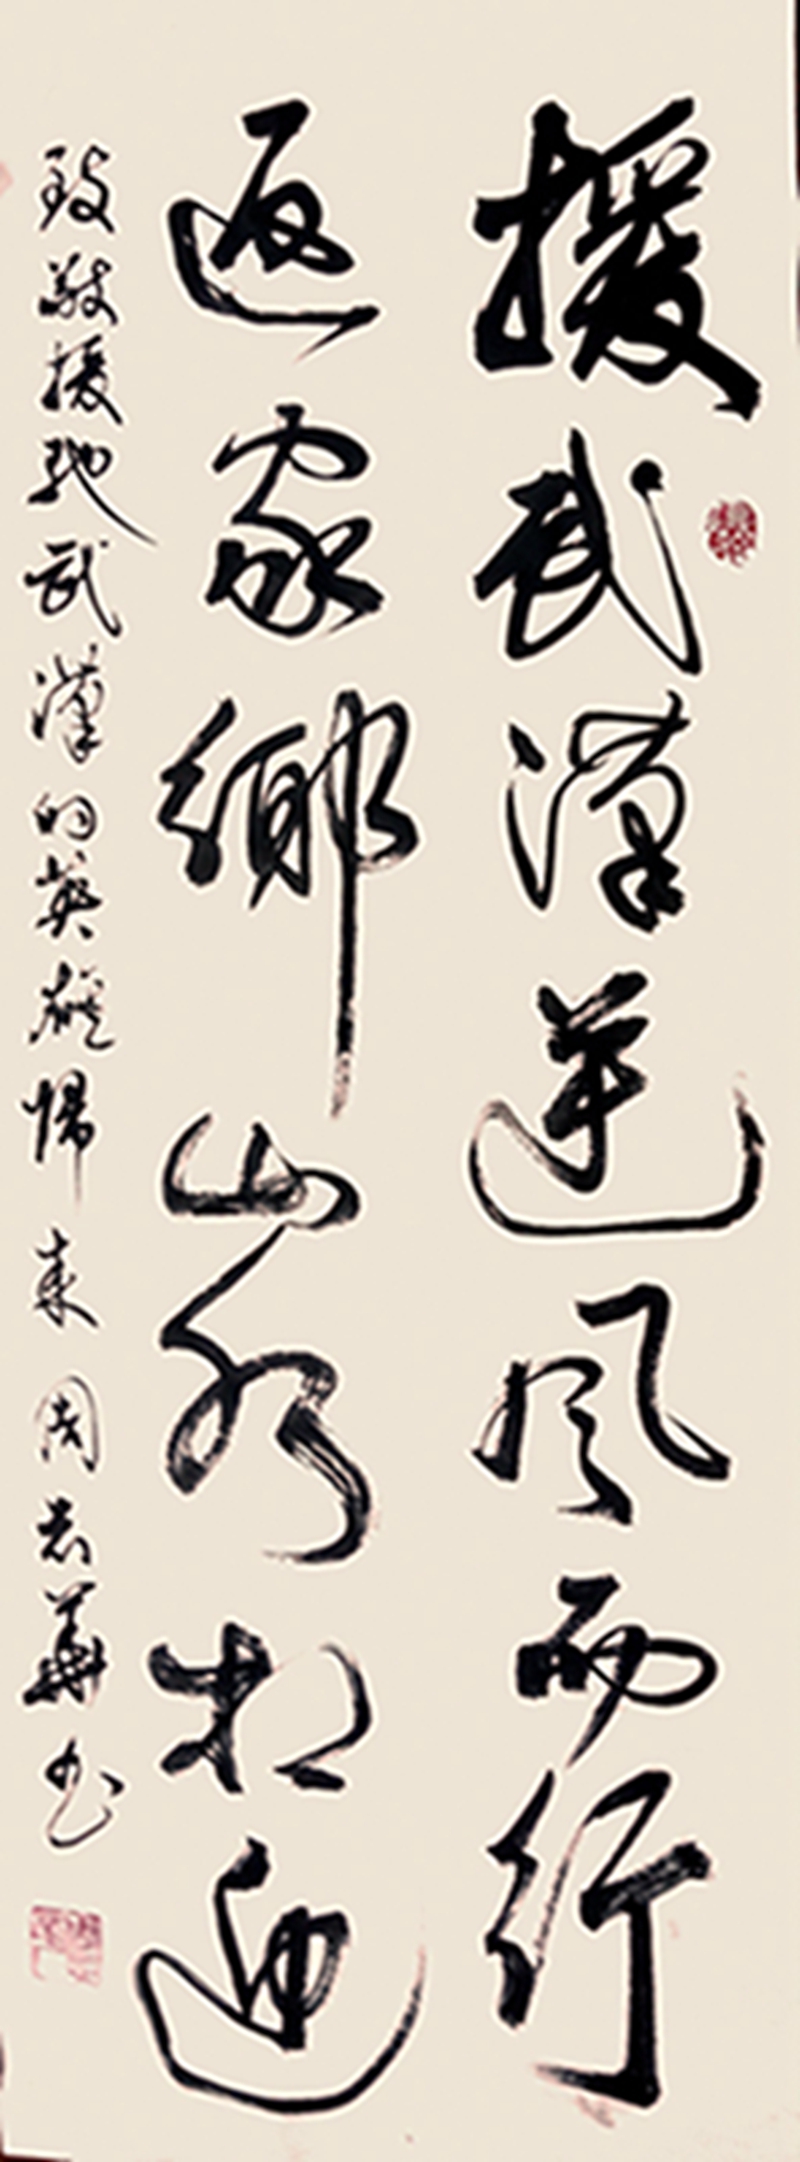 援武漢逆風而行
返家鄉山水相迎
致敬援馳武漢的英雄歸來周志華书